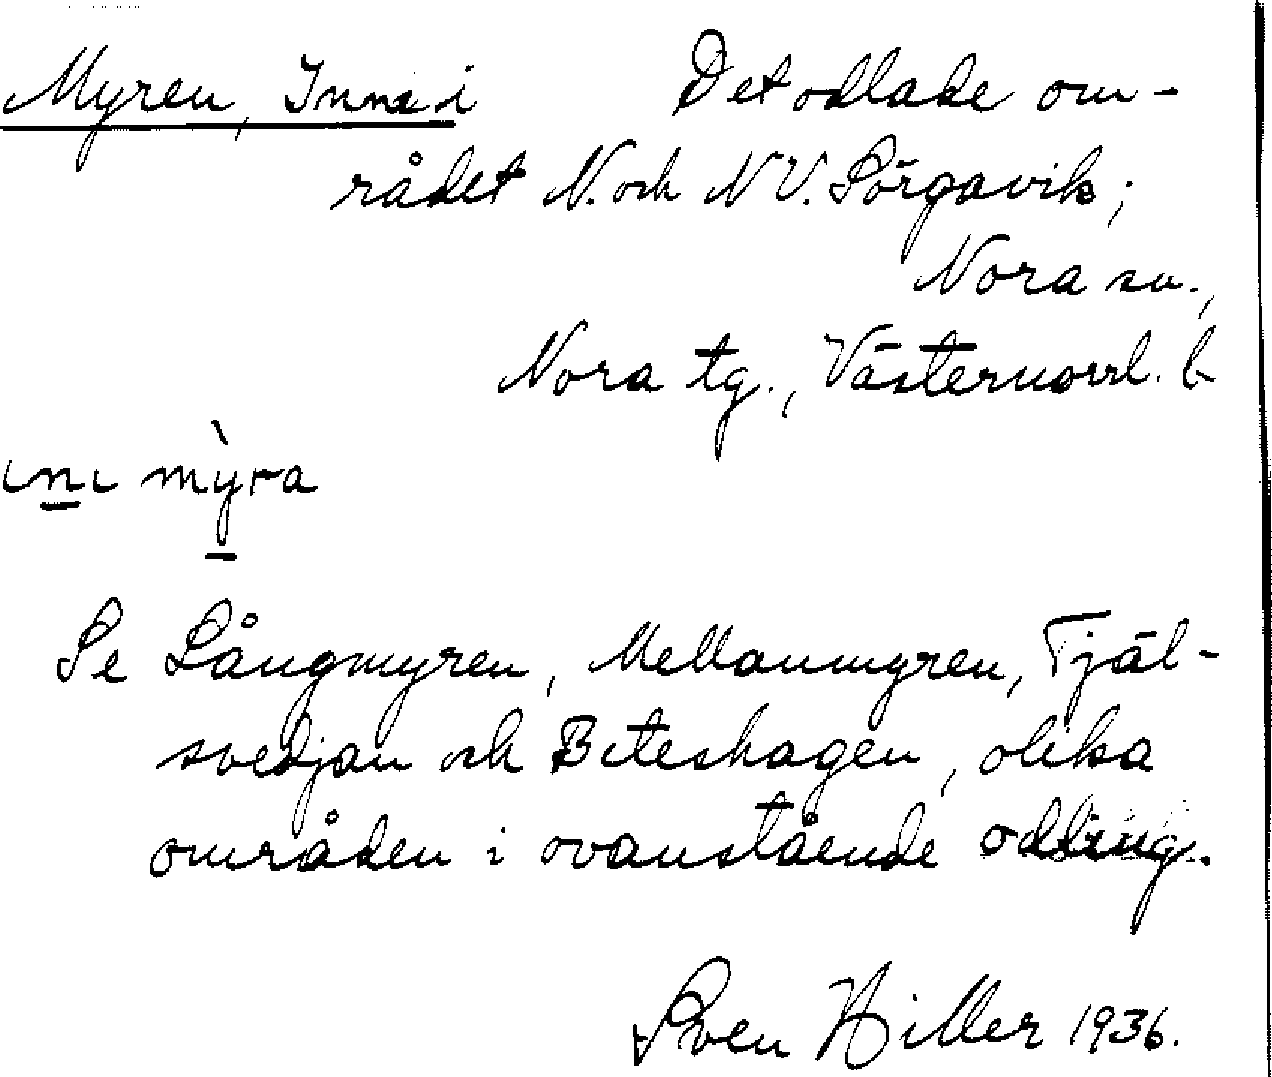 Myren, Inne i Det odlade om-
rådet N. och NV. Sörgavik;
Nora sn.,
Nora tg., Västernorrl. l.
ını mỳra
Se Långmyren, Mellanmyren, Tjäl-
svedjan och Beteshagen, olika
områden i ovanstående odling.
Sven Hiller 1936.